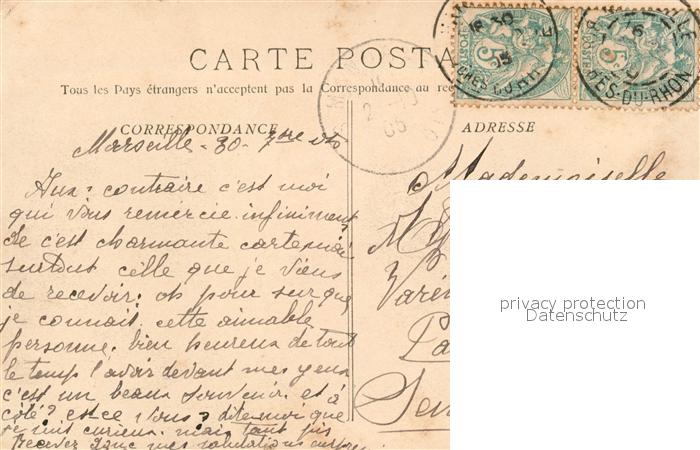 CARTE POSTA
Tous les Pays étrangers n'acceptent pas la Correspondance au rec
CORRESPONDANCE
ADRESSE
Marseille - 30 - 7bre
Mademoiselle
Aux? contraire c'est moi
qui vous remercie infiniment
de c'est charmante carte
surtout celle que je viens
de recevoir. pour sur que
je connait cette aimable
personne, bien heureux de tout
le temps l'avoir devant mes yeux
c'est un beau souvenir et à
côté? est-ce vous? dite moi que
suit curieux. mais tant pis
Recevez donc mes salutations
Varen
Pa
Sei
5
5
30
05
HES-DU-RHON
privacy protection
Datenschutz